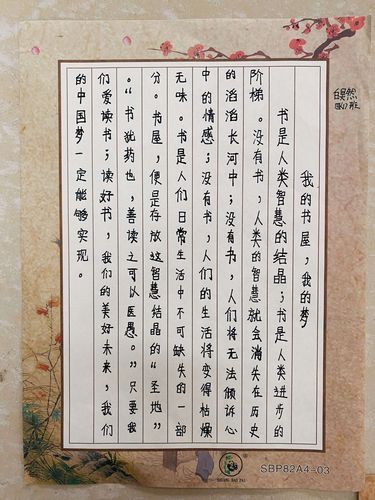 我的书屋,我的梦
书是人类智慧的结晶;书是人类进步的
阶梯。没有书,人类的智慧就会消失在历史
的滔滔长河中;没有书,人们将无法倾诉心
中的情感;没有书,人们的生活将变得枯燥
无味。书是人们日常生活中不可缺失的一部
分。书屋,便是存放这智慧结晶的“圣地”
。“书犹药也,善读之可以医愚。”只要我
们爱读书;读好书,我们的美好未来,我们
的中国梦一定能够实现。
SBP82A4-03